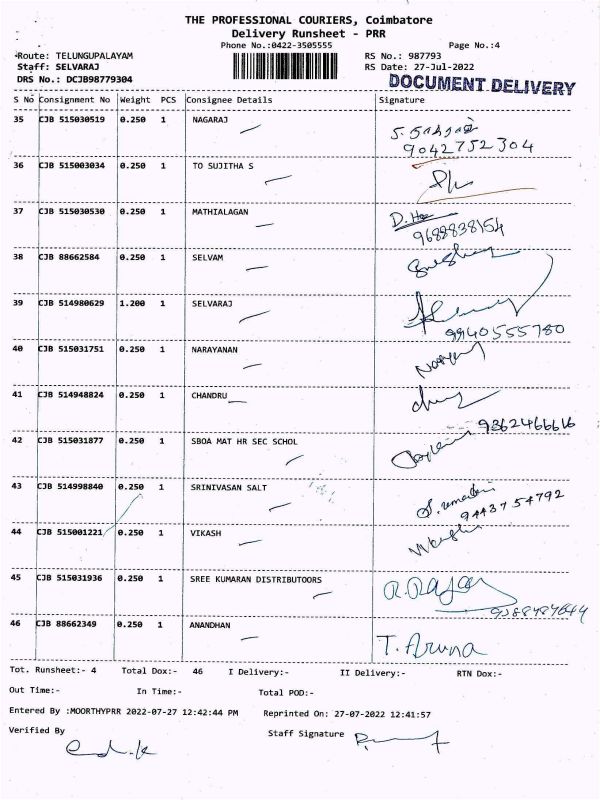 THE PROFESSIONAL COURIERS, Coimbatore
Delivery Runsheet - PRR
Phone No.:0422-3505555 Page No.:4
Route: TELUNGUPALAYAM RS No.: 987793
Staff: SELVARAJ RS Date: 27-Jul-2022
DRS No.: DCJB98779304 DOCUMENT DELIVERY
S No Consignment No Weight PCS Consignee Details Signature
35 CJB 515030519 0.250 1 NAGARAJ
9042752304
36 CJB 515003034 0.250 1 TO SUJITHA S
37 CJB 515030530 0.250 1 MATHIALAGAN
9688838154
38 CJB 88662584 0.250 1 SELVAM
39 CJB 514980629 1.200 1 SELVARAJ
9940555780
40 CJB 515031751 0.250 1 NARAYANAN
41 CJB 514948824 0.250 1 CHANDRU
9362466616
42 CJB 515031877 0.250 1 SBOA MAT HR SEC SCHOL
43 CJB 514998840 0.250 1 SRINIVASAN SALT
9443754792
44 CJB 515001221 0.250 1 VIKASH
45 CJB 515031936 0.250 1 SREE KUMARAN DISTRIBUTOORS
46 CJB 88662349 0.250 1 ANANDHAN T. Aruna
Tot. Runsheet:- 4 Total Dox:- 46 I Delivery:- II Delivery:- RTN Dox:-
Out Time:- In Time:- Total POD:-
Entered By :MOORTHYPRR 2022-07-27 12:42:44 PM Reprinted On: 27-07-2022 12:41:57
Verified By Staff Signature